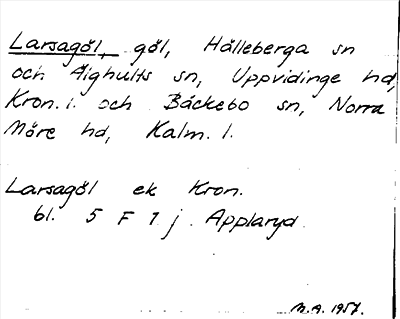 Larsagöl, göl, Hälleberga sn
och Älghults sn, Uppvidinge hd,
Kron. l. och Bäckebo sn, Norra
Möre hd, Kalm. l.
Larsagöl ek Kron.
bl. 5 F 1 j. Applaryd
M.A. 1957.